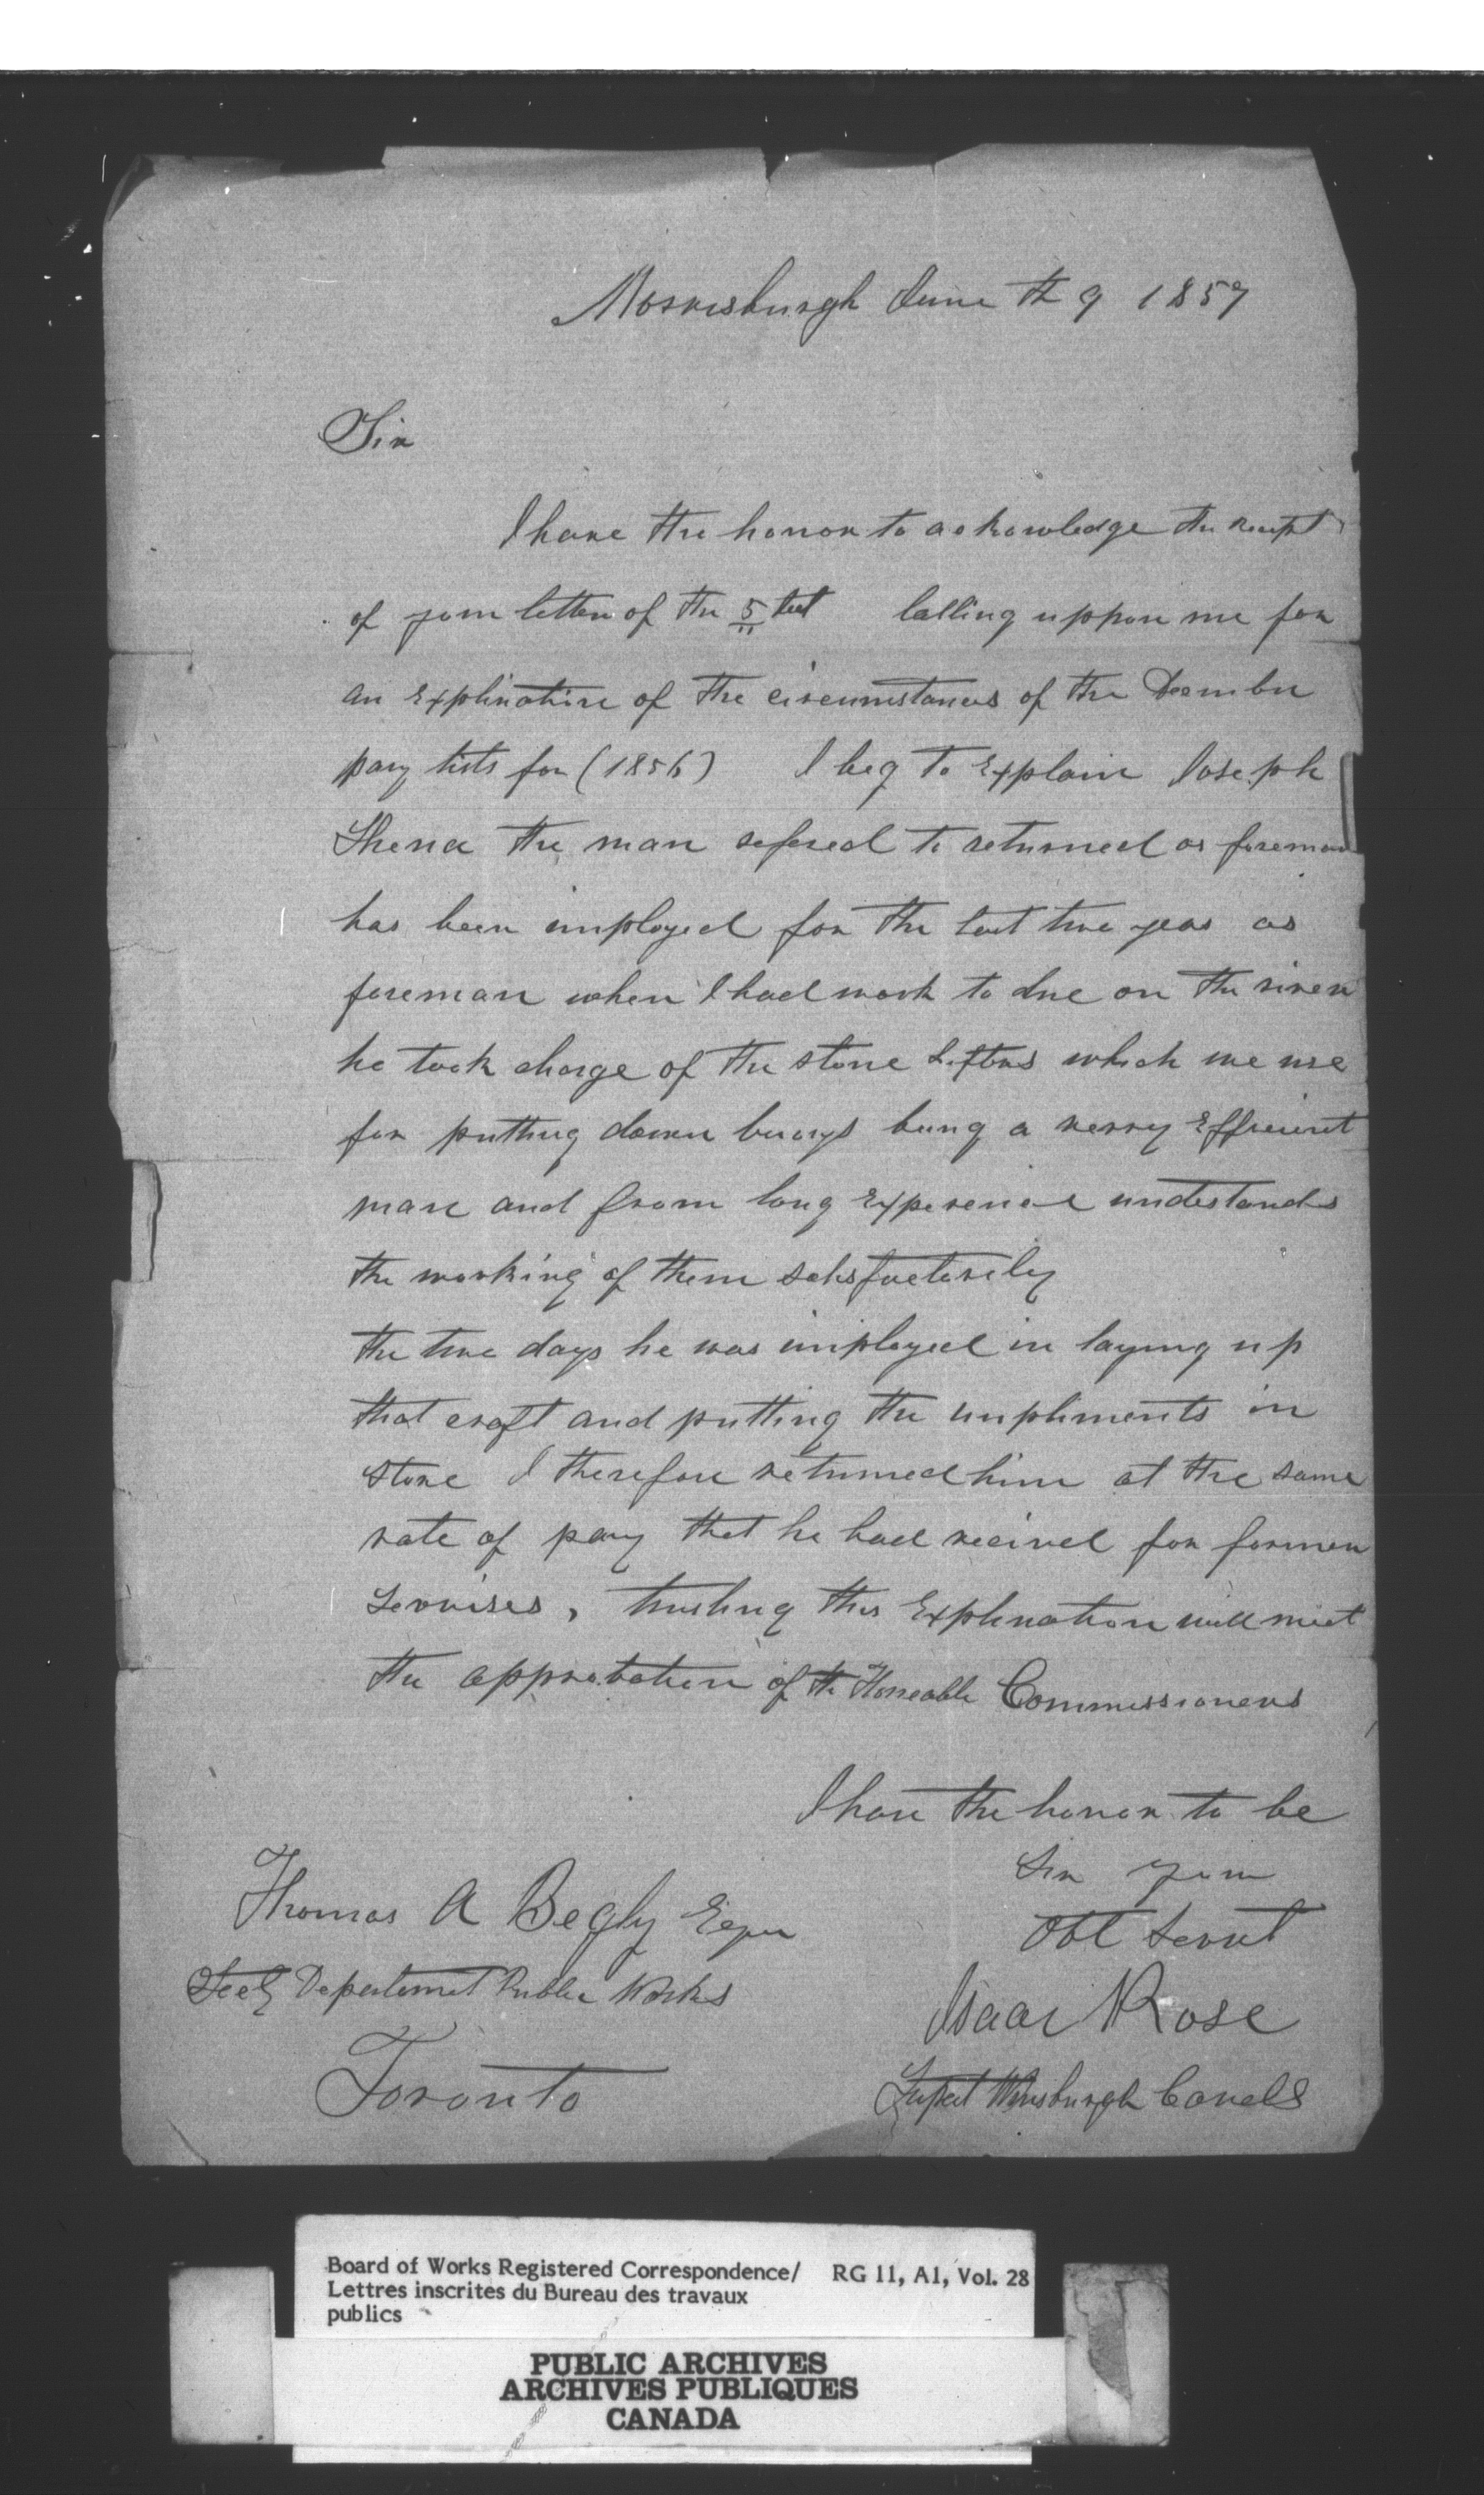 Morrisburgh June th 9 1857
Sir
I have the honor to acknowledge the receipt
of your letter of the 5 calling uppon me for
an Explination of the circumstances of the December
pay lists for (1856) I beg to Explain Joseph
the man refered to returned as foreman
has been imployed for the last two years as
foreman when I had work to due on the river
he took charge of the stone Lifters which we use
for putting down buoys being a verry Efficient
man and from long Experience understands
the working of them satisfactorily
the two days he was imployed in laying up
that craft and putting the impliments in
store I therefore returned him at the same
rate of pay that he had recived for former
Servises, trusting this Explination will meet
the approbation of the Honeable Commissioners
I have the honor to be
Sir your
Obt Servt
Isaac Rose
Supet Wmsburgh Canals
Thomas A Begly Esqr
Secty Department Public Works
Toronto
Board of Works Registered Correspondence/ RG 11, A1, Vol. 28
Lettres inscrites du Bureau des travaux
publics
PUBLIC ARCHIVES
ARCHIVES PUBLIQUES
CANADA